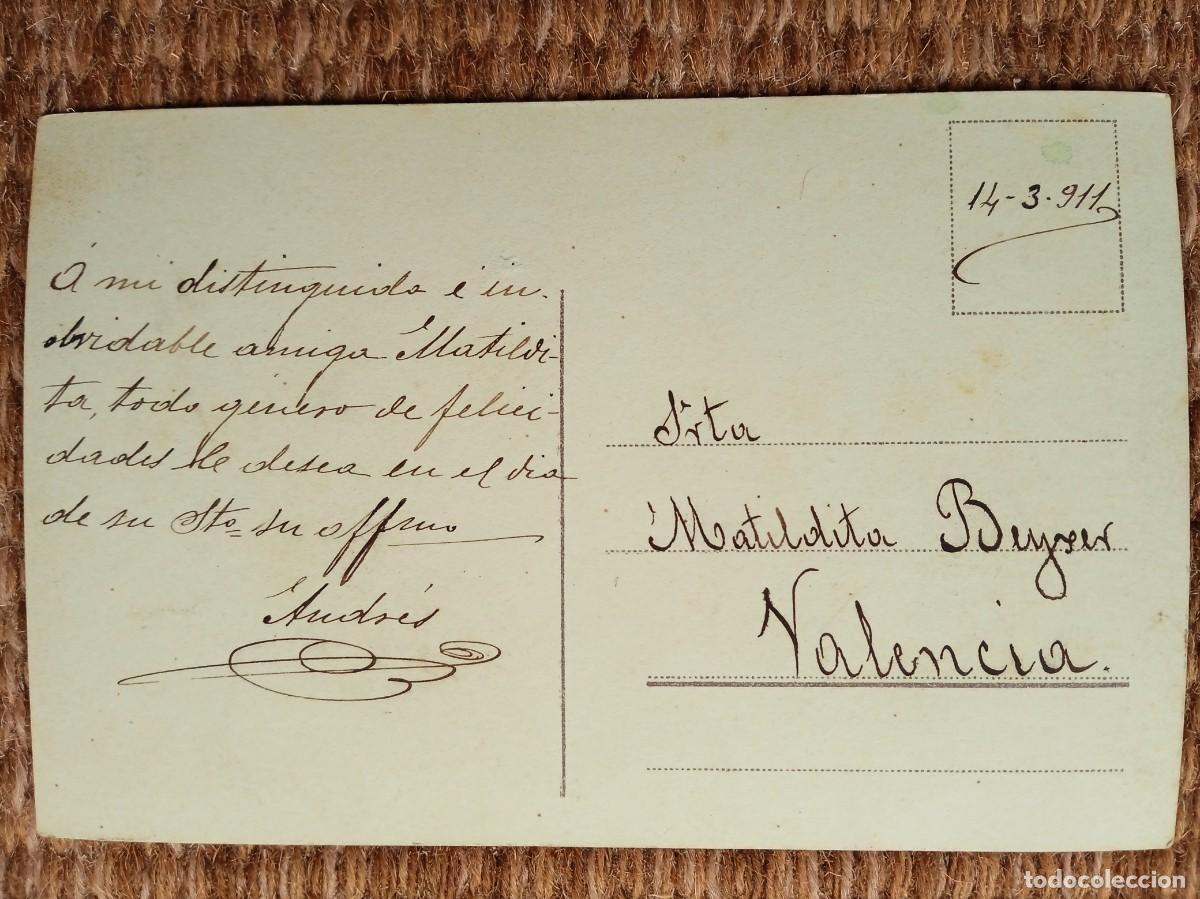 14-3-911
Á mi distinguida é in-
olvidable amiga Matildi-
ta, todo género de felici-
dades le desea en el dia
de su Sto= su affmo
Andrés
Srta
Matildita Beyxer
Valencia.
todocoleccion